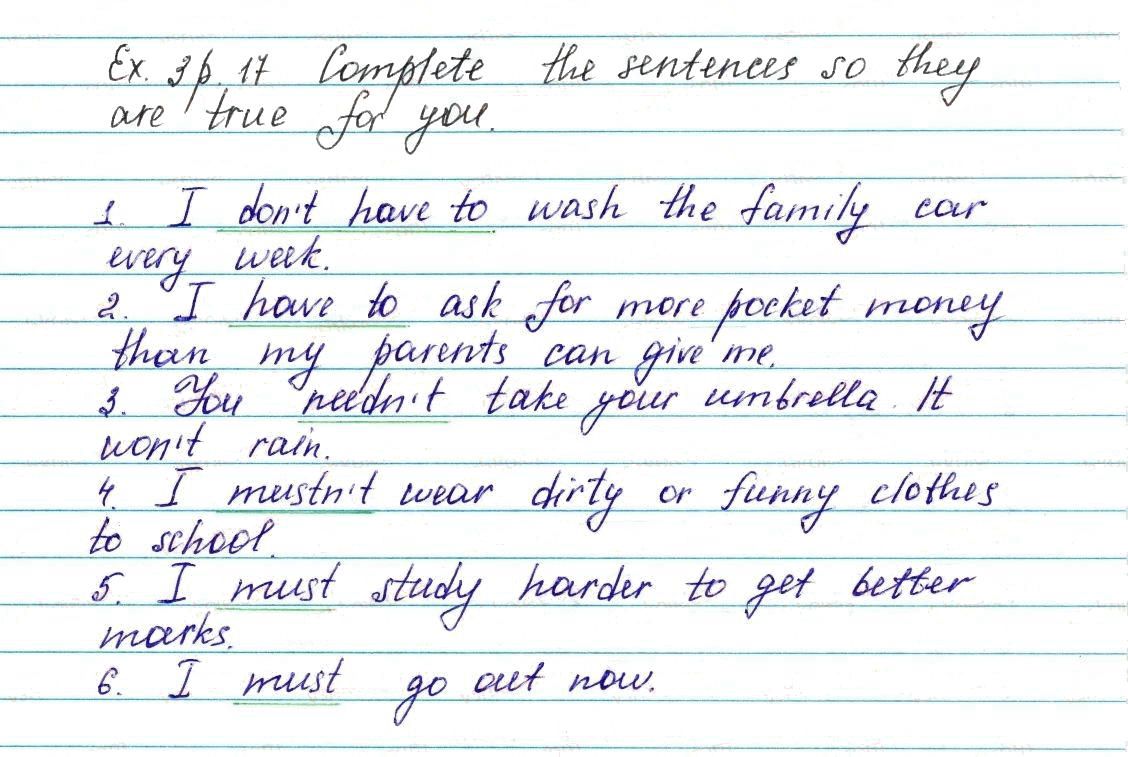 Ex. 3 p. 17 Complete the sentences so they
are true for you.
1. I don't have to wash the family car
every week.
2. I have to ask for more pocket money
than my parents can give me.
3. You needn't take your umbrella. It
won't rain.
4. I mustn't wear dirty or funny clothes
to school.
5. I must study harder to get better
marks.
6. I must go out now.